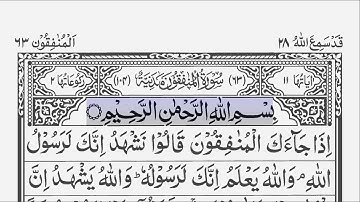 قَدْ سَمِعَ اللّٰهُ ٢٨ اَلْمُنٰفِقُوْنَ ٦٣
اٰيَاتُهَا ١١ (٦٣) سُوْرَةُ الْمُنٰفِقُوْنَ مَدَنِيَّةٌ (١٠٤) رُكُوْعَاتُهَا ٢
بِسْمِ اللّٰهِ الرَّحْمٰنِ الرَّحِيْمِ
اِذَا جَآءَكَ الْمُنٰفِقُوْنَ قَالُوْا نَشْهَدُ اِنَّكَ لَرَسُوْلُ
اللّٰهِ ۘ وَاللّٰهُ يَعْلَمُ اِنَّكَ لَرَسُوْلُهٗ ؕ وَاللّٰهُ يَشْهَدُ اِنَّ